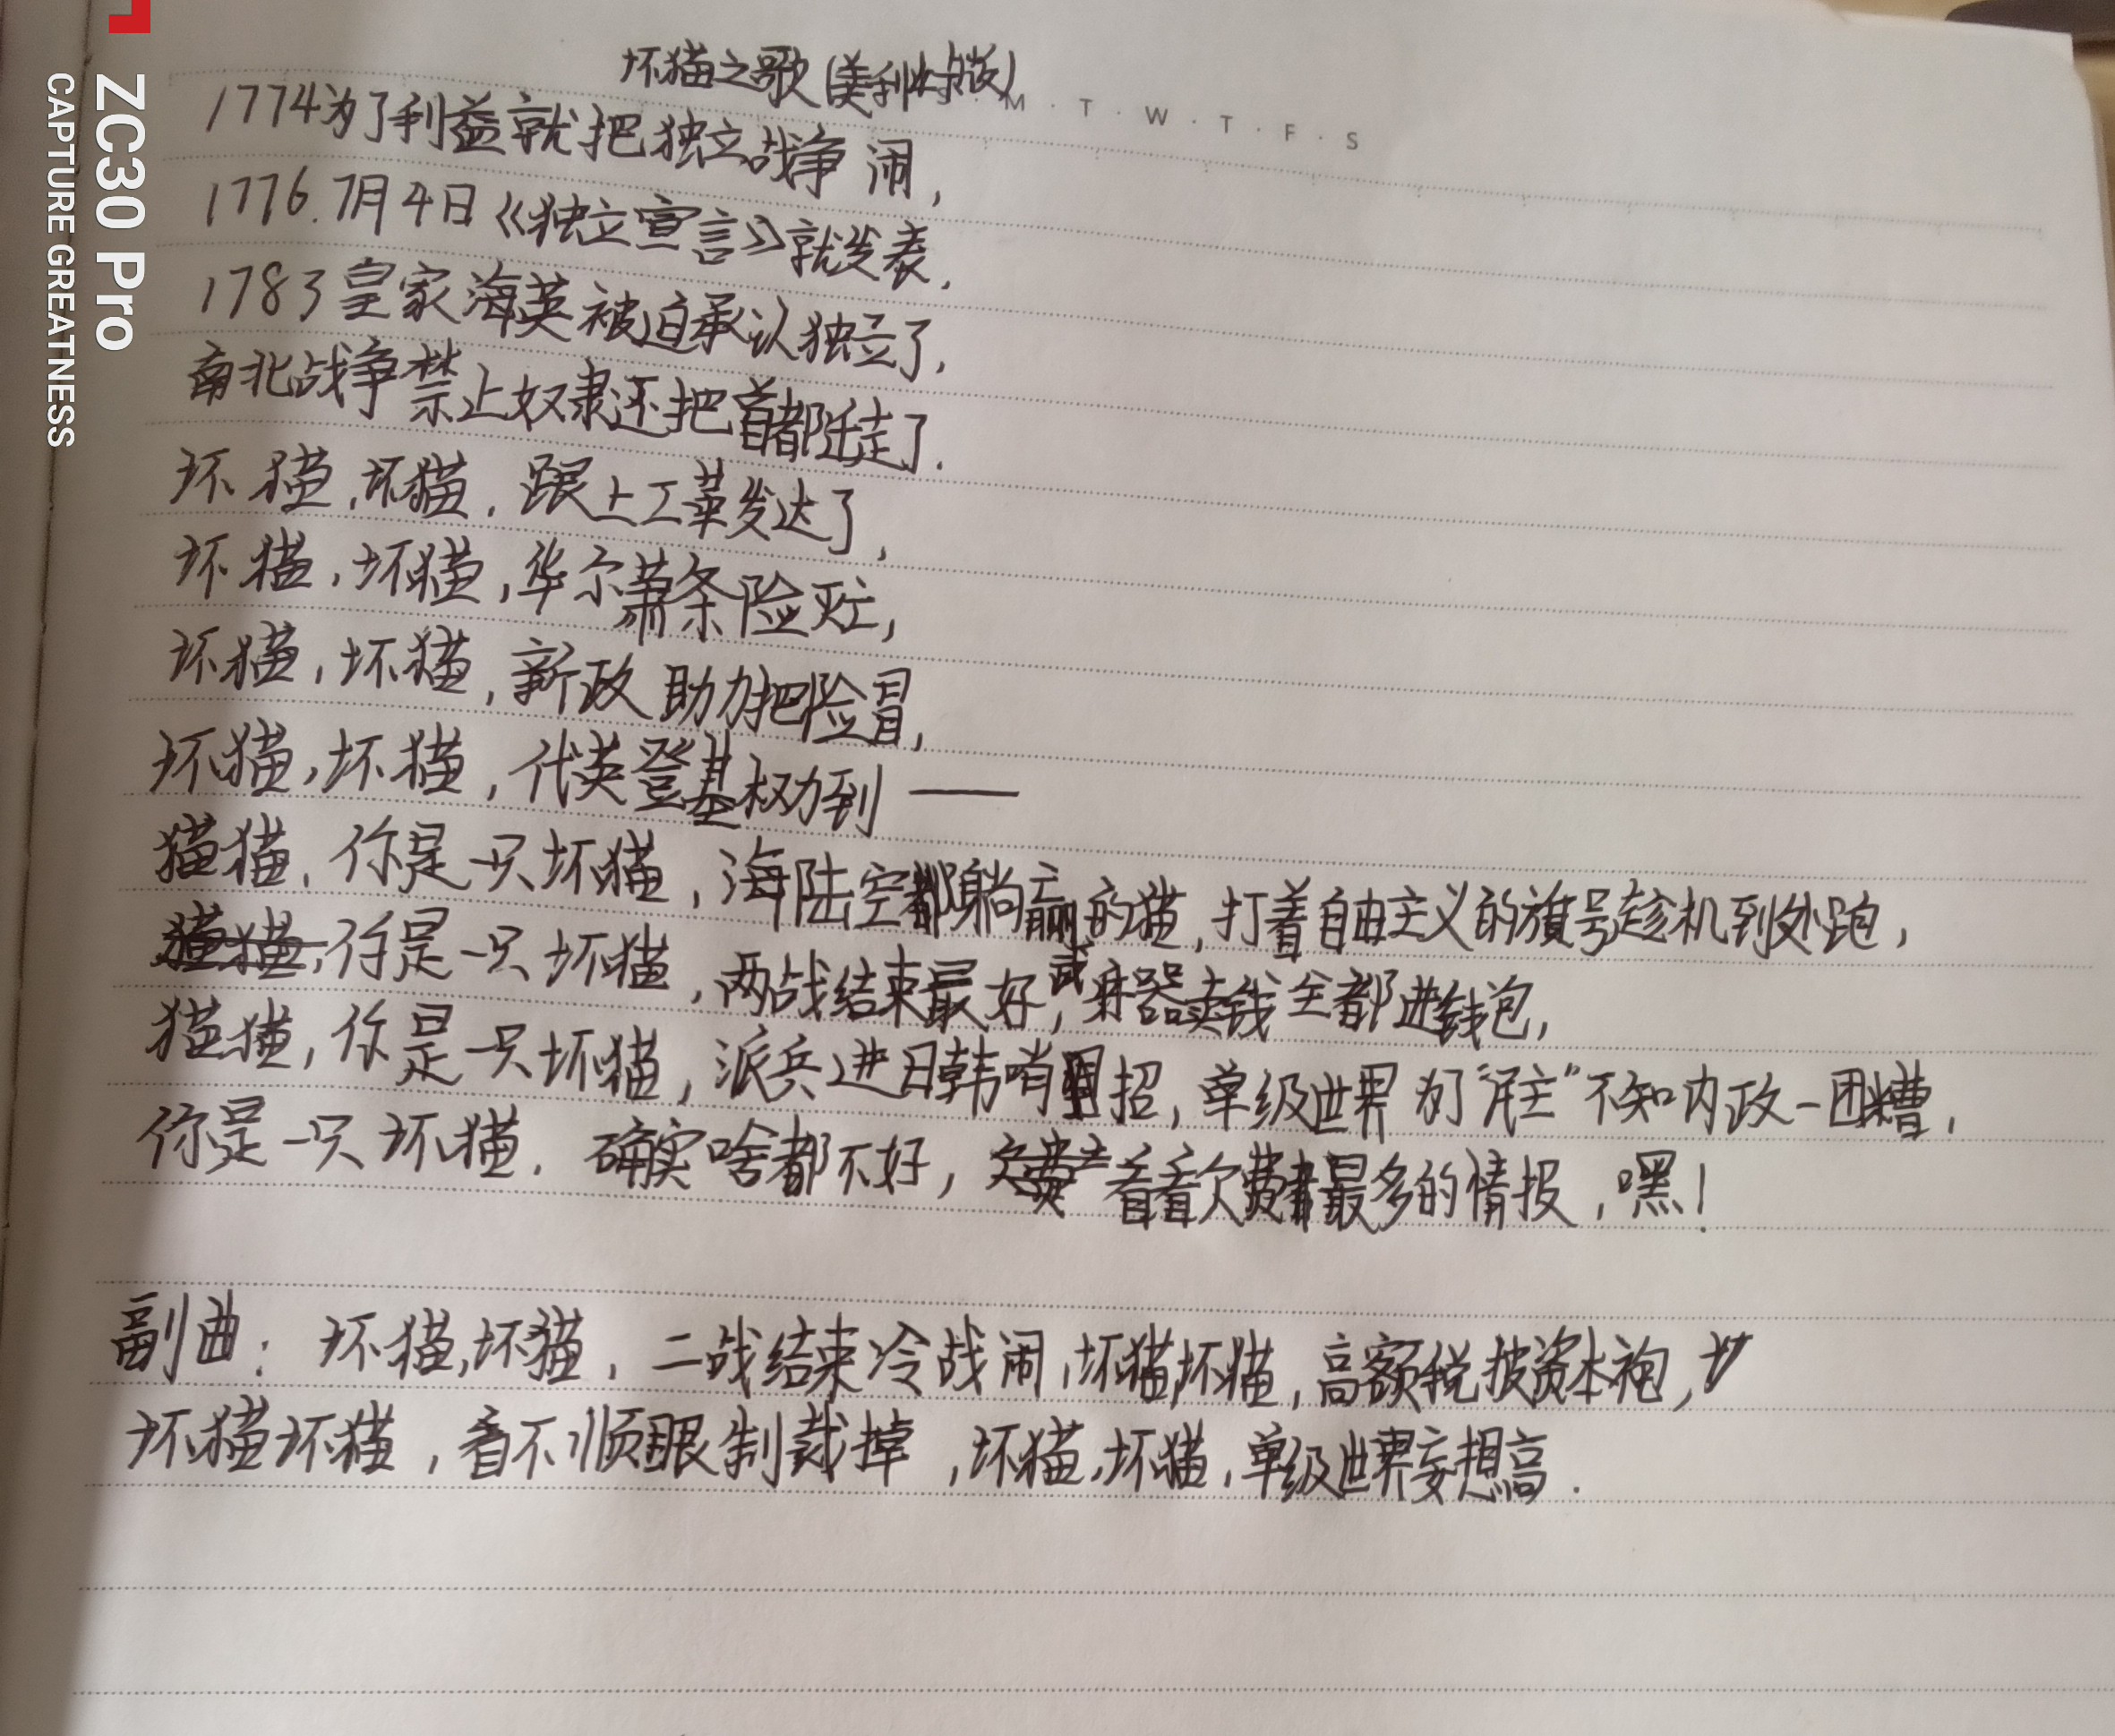 坏猫之歌(美利坚版)
M · T · W · T · F · S
1774为了利益就把独立战争闹,
1776.7月4日《独立宣言》就发表,
1783皇家海英被迫承认独立了,
南北战争禁止奴隶还把首都迁走了.
坏猫,坏猫,跟上工业发达了,
坏猫,坏猫,华尔萧条险灾,
坏猫,坏猫,新政助力把险冒,
坏猫,坏猫,代英登基权力到——
猫猫,你是一只坏猫,海陆空都躺赢的猫,打着自由主义的旗号趁机到处跑,
你是一只坏猫,两战结束最好,武器卖钱全都进钱包,
猫猫,你是一只坏猫,派兵进日韩哨招,单级世界为了"民主"不知内政一团糟,
你是一只坏猫.确实啥都不好,看看欠费最多的情报,嘿!
副曲:坏猫,坏猫,二战结束冷战闹,坏猫,坏猫,高额税披资本袍,
坏猫坏猫,看不顺眼制裁掉,坏猫,坏猫,单级世界妄想高.
ZC30 Pro
CAPTURE GREATNESS